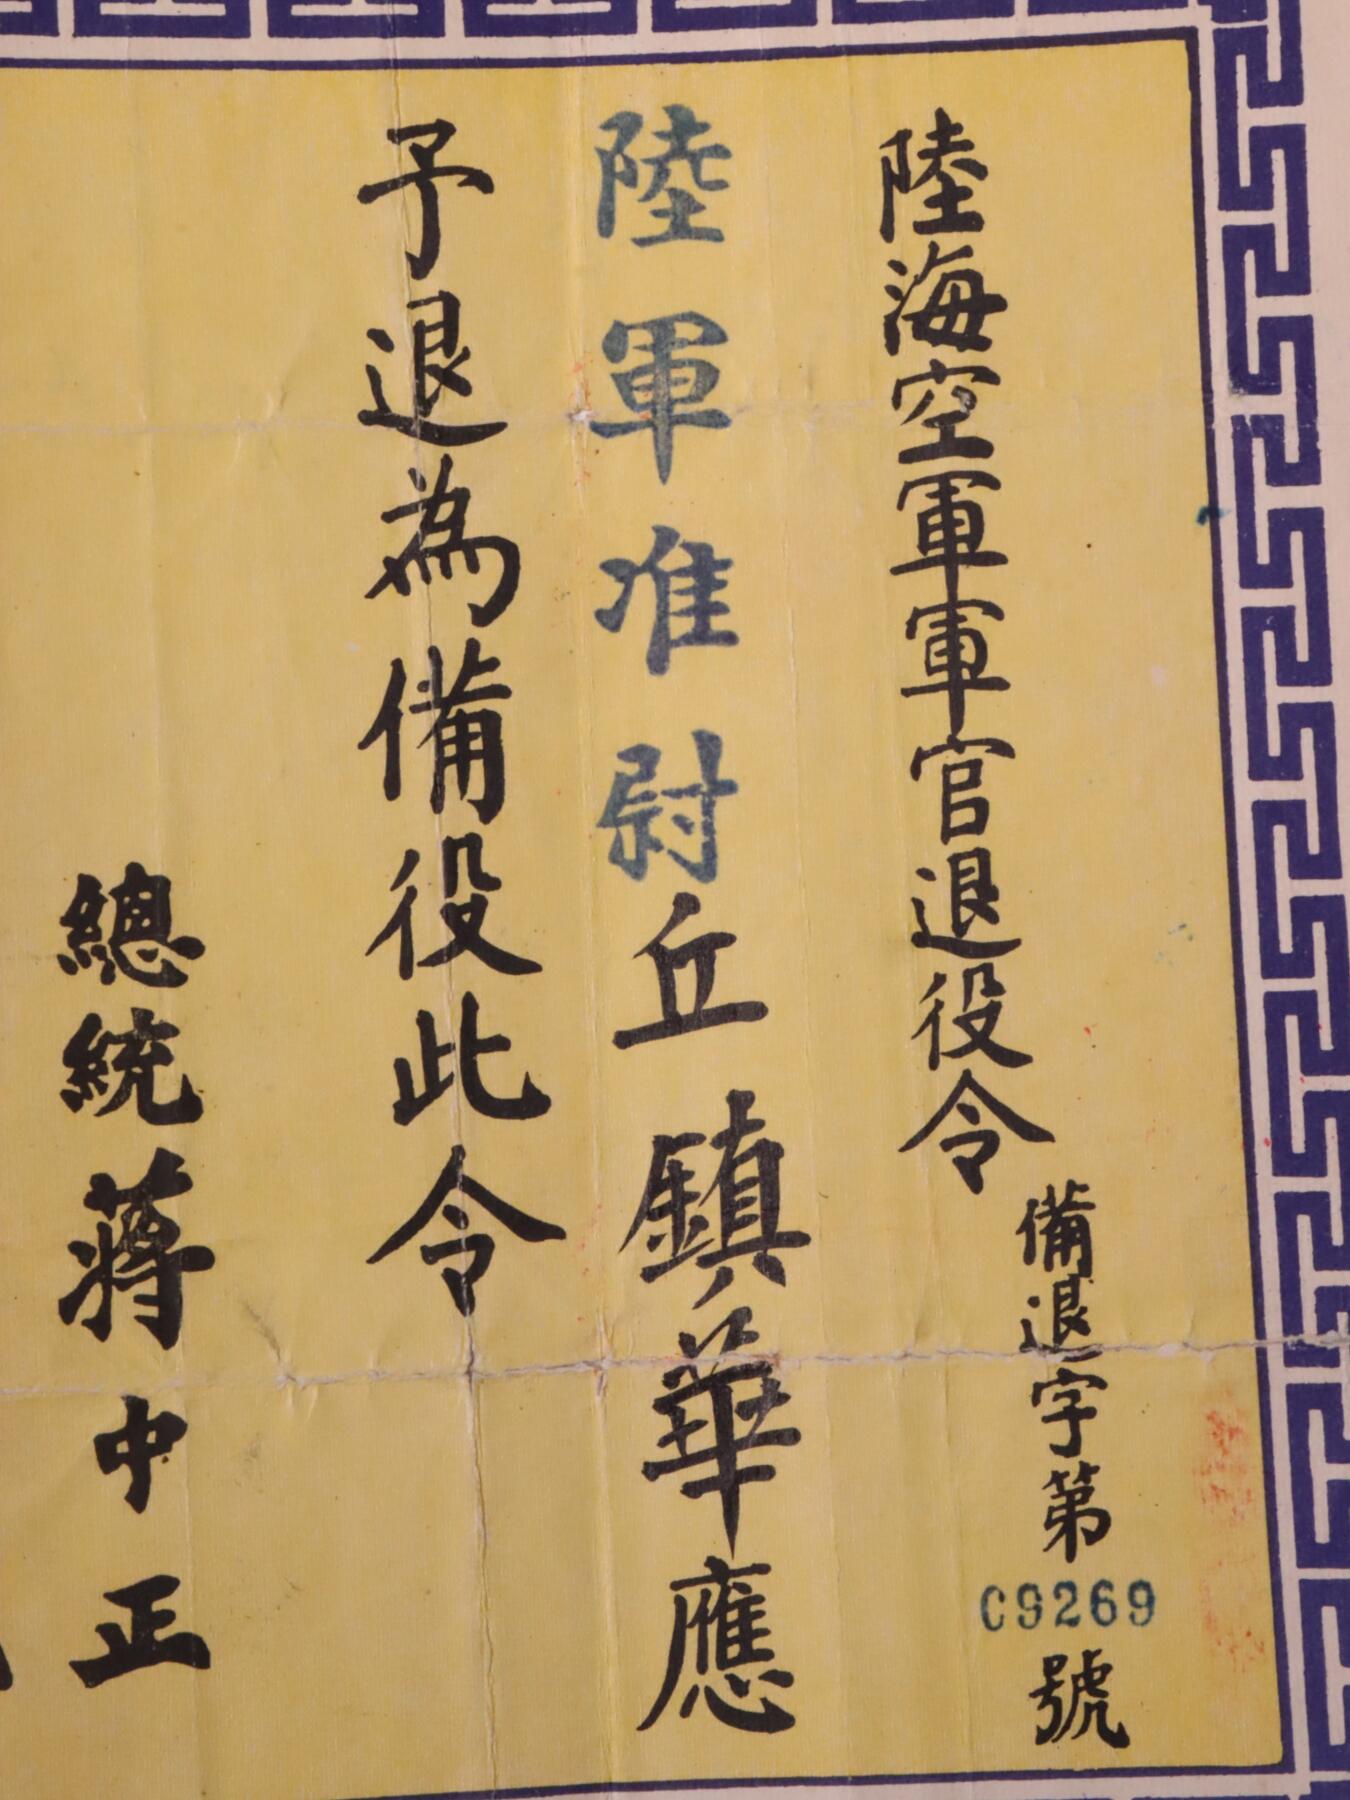 陸海空軍軍官退役令
備退字第C9269號
陸軍准尉丘鎮華應
予退為備役此令
總統蔣中正